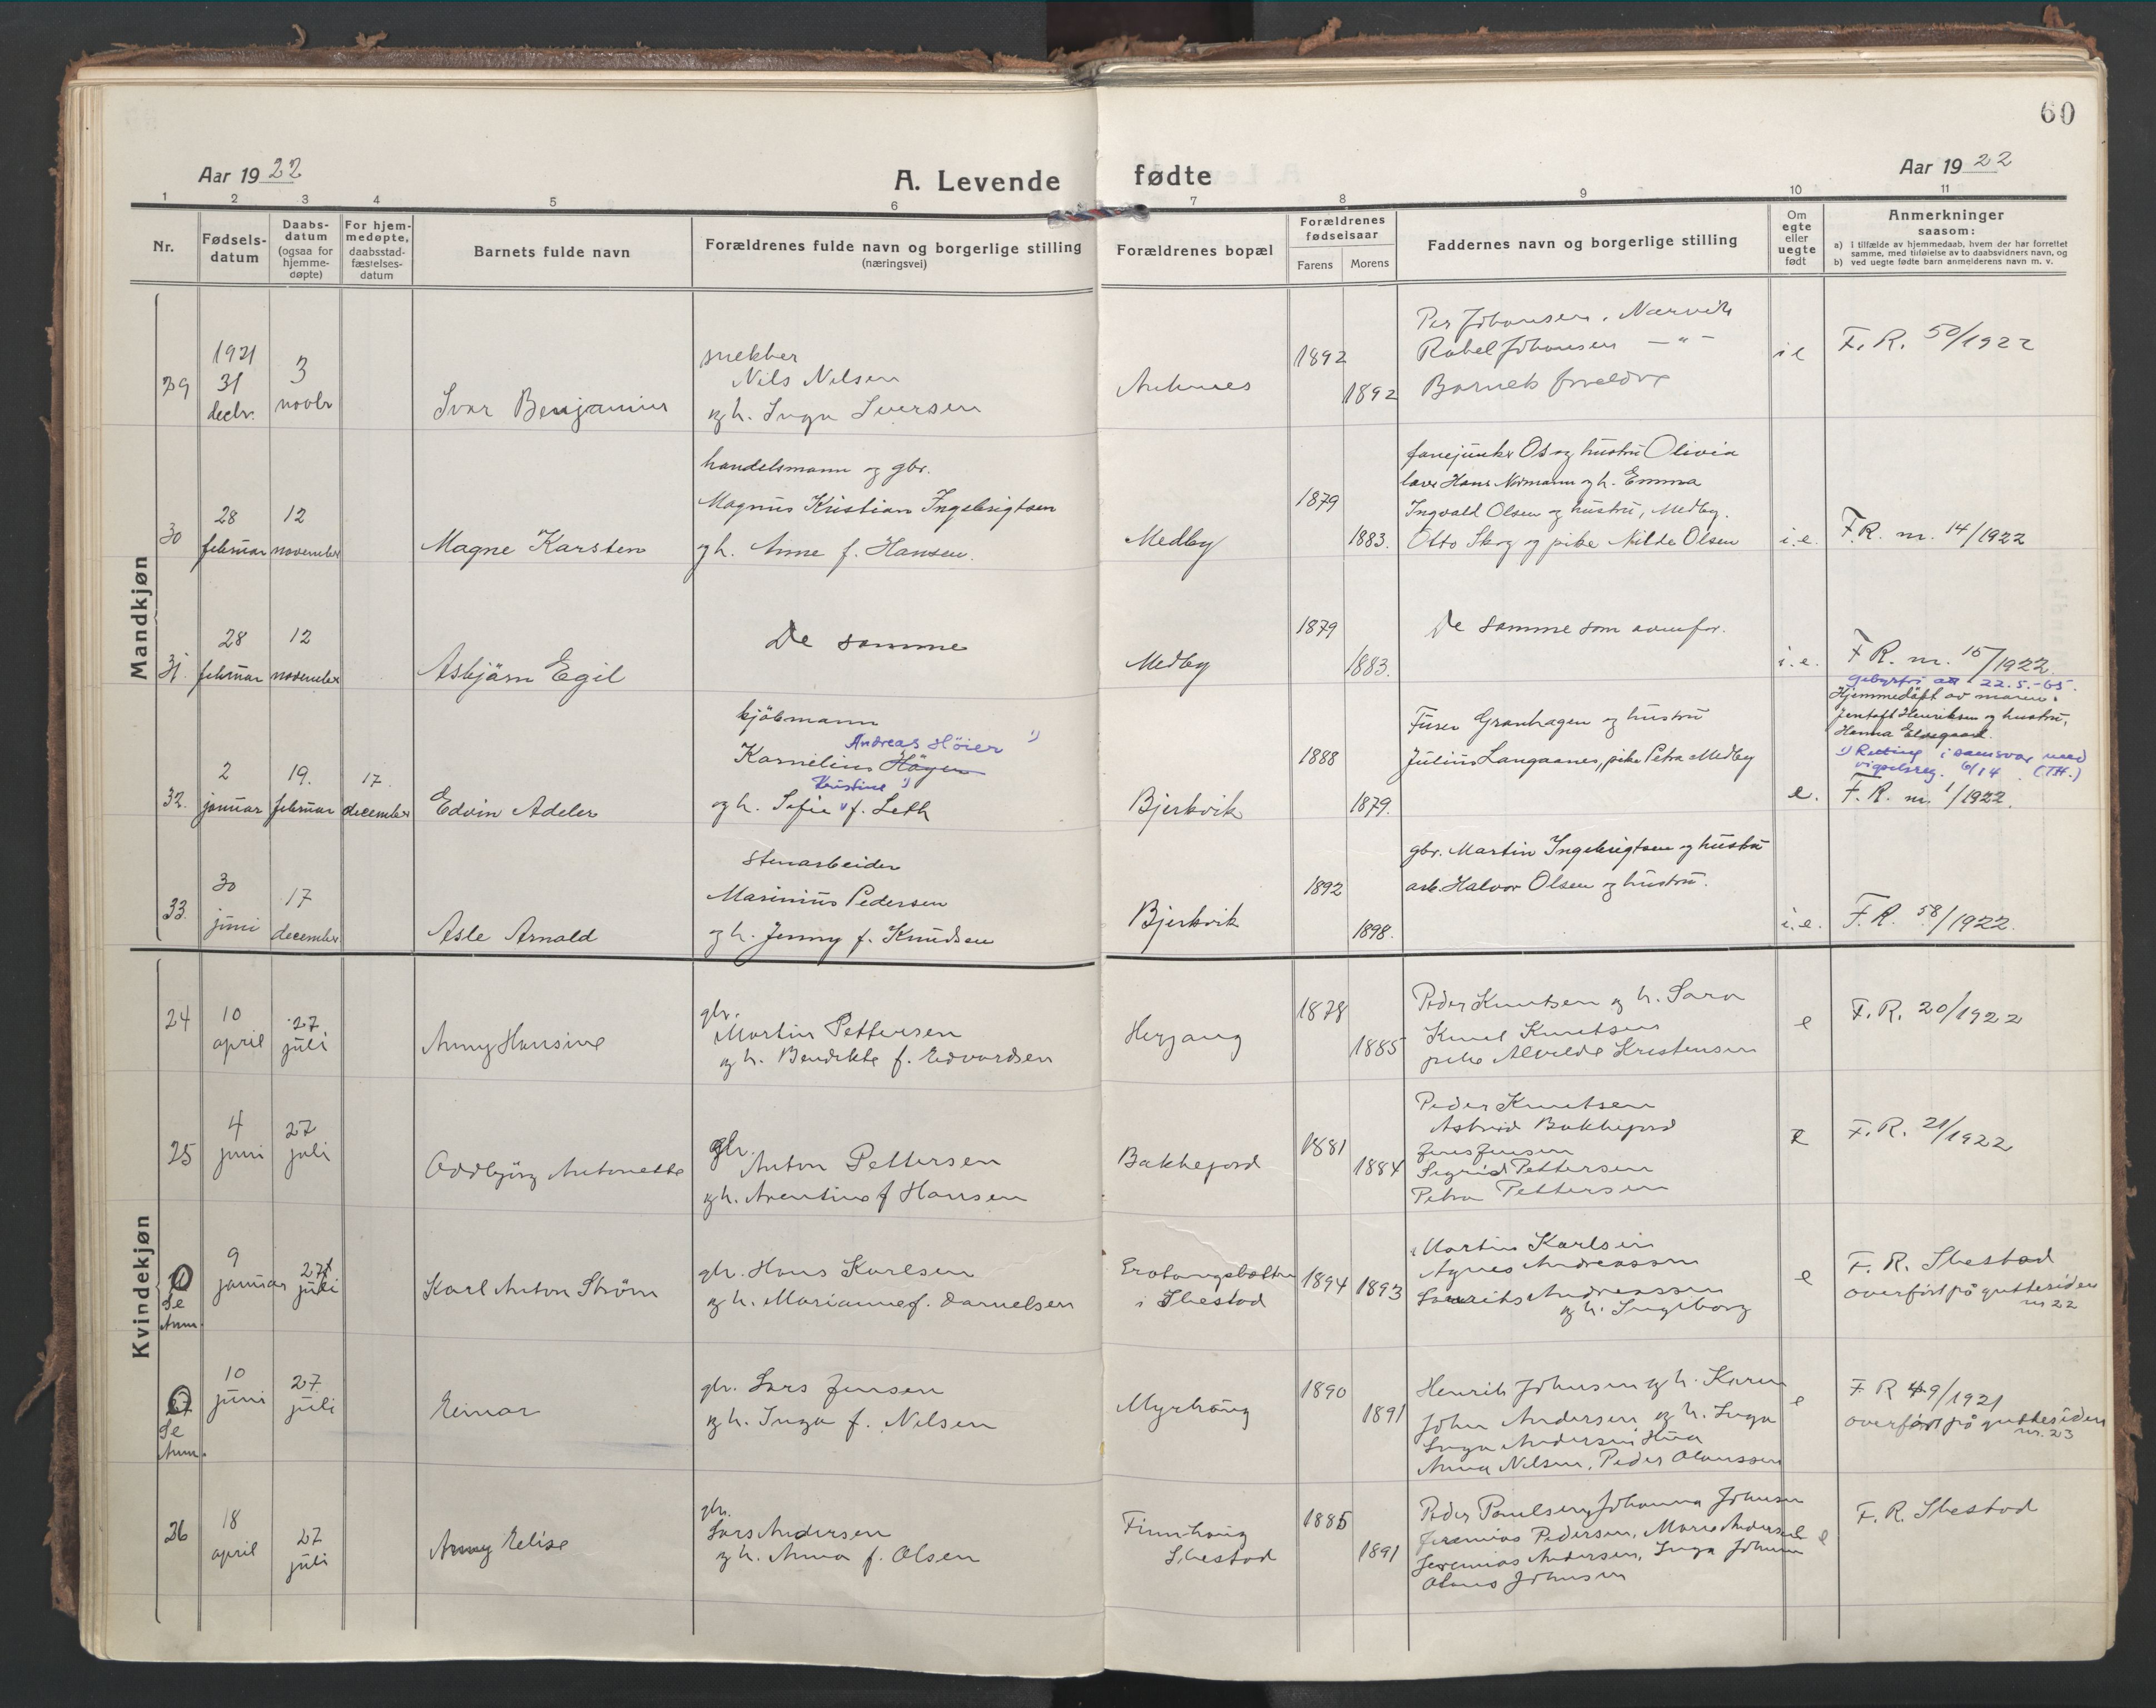 60
Aar 1922
A. Levende fødte
Aar 1922
1 2 3 4 5 6 7 8 9 10 11
Nr.
Fødsels-
datum
Daabs-
datum
(ogsaa for
hjemme-
døpte)
For hjem-
medøpte,
daabsstad-
fæstelses-
datum
Barnets fulde navn
Forældrenes fulde navn og borgerlige stilling
(næringsvei)
Forældrenes bopæl
Forældrenes
fødselsaar
Farens
Morens
Faddernes navn og borgerlige stilling
Om
egte
eller
uegte
født
Anmerkninger
saasom:
a) i tilfælde av hjemmedaab, hvem der har forrettet
samme, med tilføielse av to daabsvidners navn, og
b) ved uegte fødte barn anmelderens navn m. v.
Mandkjøn
29
1921
31
decbr.
3
novbr
Ivar Benjamin
snekker
Nils Nilsen
og h. Inga Iversen
1892
1892
Per Johansen, Narvik
Rabel Johansen — " —
Barnets foreldre
i e
F. R. 50/1922
30
28
februar
12
november
Magne Karsten
handelsmann og gbr.
Magnus Kristian Ingebrigtsen
og h. Anne f. Hansen.
Medby
1879
1883.
fanejunker Os og hustru Olivia
Hans Normann og h. Emma
Ingvald Olsen og hustru, Medby.
Otto Skog og pike Hilda Olsen
i.e.
F.R. nr. 14/1922
31
28
februar
12
november
Asbjørn Egil
De samme
Medby
1879
1883.
De samme som ovenfor.
i.e.
F R. nr. 15/1922.
Gebyrfri att 22.5.-65.
32.
2
januar
19.
februar
17.
december
Edvin Adeler
kjøbmann
Andreas Höier 1)
Kornelius Höyer
Kristine 1)
og h. Sofie f. Leth
Bjerkvik
1888
1879.
Granhagen og hustru
Julius Langaanes, pike Petra Medby
e.
Hjemmedöpt av moren.
Jentoft Henriksen og hustru,
Hanna Eldegaard.
1) Retting i samsvar med
vigselsreg. 6/14. (TH.)
F. R. nr. 1/1922.
33.
30
juni
17
december
Asle Arnold
stenarbeider
Marinius Pedersen
og h. Jenny f. Knudsen
Bjerkvik
1892
1898.
gbr. Martin Ingebrigtsen og hustru
arb. Halvor Olsen og hustru.
i.e.
F. R. 58/1922.
Kvindekjøn
24
10
april
27
juli
Anny Hansine
gbr.
Martin Pettersen
og h. Bendikte f. Edvardsen
Herjang
1878
1885
Peder Knutsen og h. Sara
Knut Knutsen
pike Alvilde Kristensen
e
F. R. 20/1922
25
4
juni
27
juli
Oddbjörg Antonette
gbr.
Anton Pettersen
og h. Arentine f Hansen
Bakkejord
1881
1884
Peder Knutsen
Astrid Bakkejord
Jens Jensen
Sigrid Pettersen
Petra Pettersen
e
F. R. 21/1922
Se
Anm.
9
januar
27
juli
Karl Anton Strøm
gbr. Hans Karlsen
og h. Marianne f. Danielsen
i Ibestad
1894
1893
Martin Karlsen
Agnes Andreassen
Andreassen
og h. Ingeborg
e
F. R. Ibestad
overført på guttesiden
nr 22
27
Se
Anm.
10
juni
27
juli
Einar
gbr. Lars Jensen
og h. Inga f. Nilsen
Myrhaug
1890
1891
Henrik Johnsen og h. Karen
John Andersen og h. Inga
Inga Andersen
Anna Nilsen, Peder Olaussen
e
F R 49/1921
overført på guttesiden
nr. 23
26
18
april
27
juli
Anny Elise
gbr.
Lars Andersen
og h. Anna f. Olsen
Finnhaug
Ibestad
1885
1891
Peder Paulsen, Johanna Johnsen
Jeremias Pedersen, Marie Andersen
Jeremias Andersen, Inga Johnsen
Olaus Johnsen
e
F. R. Ibestad